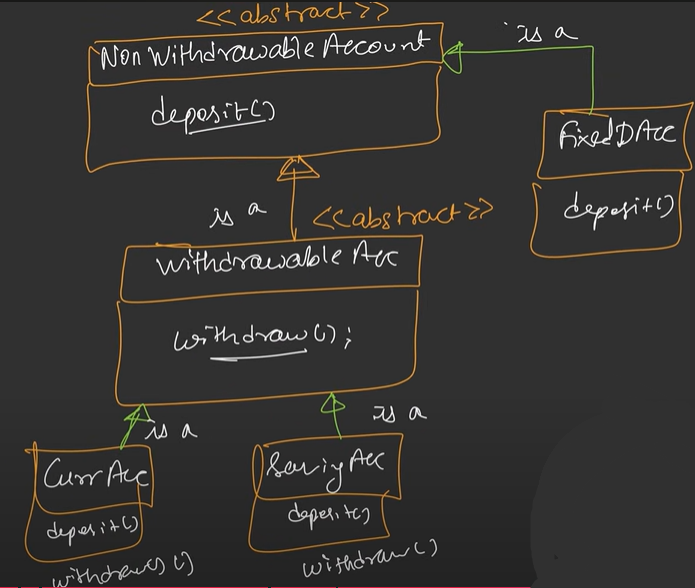 <<abstract>>
NonWithdrawable Account
deposit()
is a
FixedDAcc
deposit()
is a
<<abstract>>
Withdrawable Acc
withdraw();
is a
is a
CurrAcc
deposit()
withdraw()
SavigAcc
deposit()
withdraw()